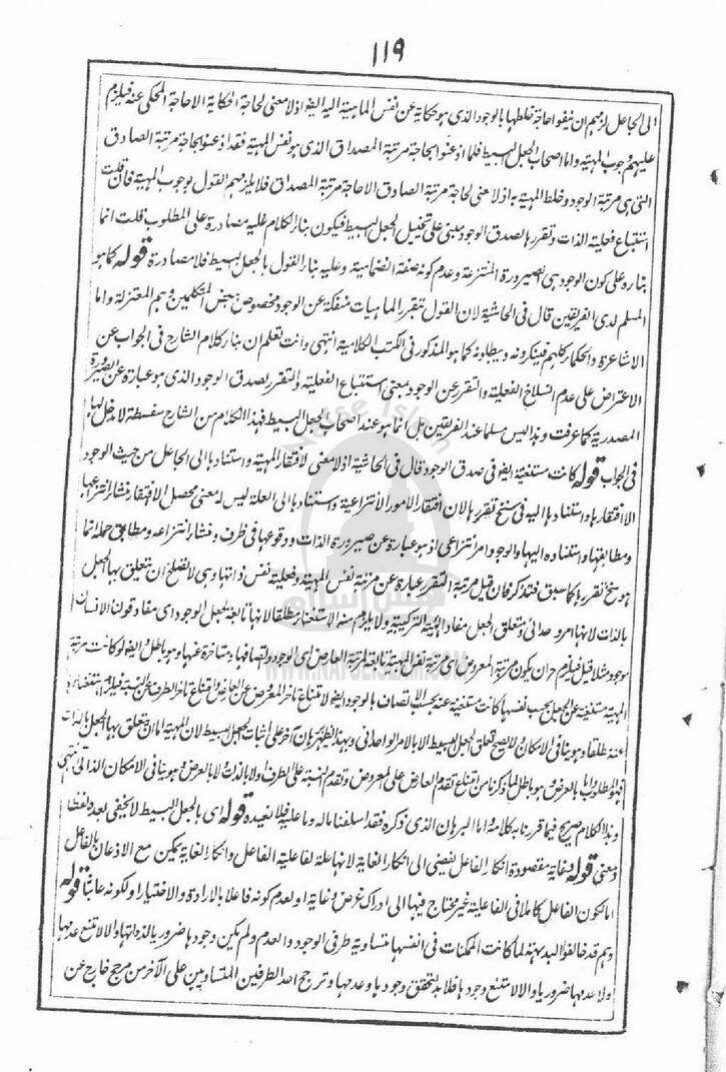 ١١٩
الى الجاعل لزمهم ان ينفوا حاجة خلطها بالوجود الذى هو حكاية عن نفس الماهية اليه ايضا اذ لا معنى لحاجة الحكاية الا حاجة المحكى عنه فيلزم
عليهم وجوب المهية واما اصحاب الجعل البسيط فلما اذعنوا بحاجة مرتبة المصداق الذى هو نفس المهية فقد اذعنوا بحاجة مرتبة الصادق
التى هى مرتبة الوجود وخلط المهية به اذ لا معنى لحاجة مرتبة الصادق الا حاجة مرتبة المصداق فلا يلزمهم القول بوجوب المهية فان قلت
استتباع فعلية الذات وتقررها لصدق الوجود مبنى على تخييل الجعل البسيط فيكون بناء الكلام عليه مصادرة على المطلوب قلت انما
بناءه على كون الوجود هى بصيرورة المنتزعة وعدم كونه صفة انضمامية وعليه بناء القول بالجعل البسيط فلا مصادرة قوله كما هو
المسلم لدى الفريقين قال فى الحاشية لان القول بتقرر الماهيات منفكة عن الوجود مخصوص ببعض المتكلمين وهم المعتزلة واما
الاشاعرة والحكماء كلهم فينكرونه ويبطلونه كما هو المذكور فى الكتب الكلامية انتهى وانت تعلم ان بناء كلام الشارح فى الجواب عن
الاعتراض على عدم انسلاخ الفعلية والتقرر عن الوجود بمعنى استتباع الفعلية والتقرر لصدق الوجود الذى هو عبارة عن الصيرورة
المصدرية كما عرفت وهذا ليس مسلما عند الفريقين بل انما هو عند اصحاب الجعل البسيط فهذا الكلام من الشارح سفسطة لا دخل لها
فى الجواب قوله كانت مستغنية ايضا فى صدق الوجود قال فى الحاشية اذ لا معنى لافتقار المهية واستنادها الى الجاعل من حيث الوجود
الا افتقارها واستنادها اليه فى سنخ تقررها لان افتقار الامور الانتزاعية واستنادها الى العلة ليس له معنى محصل الا افتقار منشأ انتزاعها
ومطابقها واستناده اليها والوجود امر انتزاعى اذ هو عبارة عن صيرورة الذات ووقوعها فى ظرف ومنشأ انتزاعه ومطابق حمله انما
هو سنخ تقررها كما سبق فتذكر فان قيل مرتبة التقرر عبارة عن مرتبة نفس المهية وفعلية نفس ذاتها وهى لا تصلح ان يتعلق بها الجعل
بالذات لانها امر وحدانى ومتعلق الجعل مفاد الهيئة التركيبية ولا يلزم منه الاستغناء مطلقا لانها تابعة لجعل الوجود اى مفاد قولنا الانسان
موجود مثلا قيل فيلزم ح ان يكون مرتبة المعروض اى مرتبة نفس المهية تابعة لمرتبة العارض اى الوجود واتصافها به متأخرة عنها وهو باطل وايضا لو كانت مرتبة
المهية مستغنية عن الجعل بحسب نفسها كانت مستغنية عنه بحسب الاتصاف بالوجود ايضا لامتناع تاخر المعروض عن العارض وامتناع تاخر الطرف عن النسبة فيلزم استغناءها
عنه مطلقا وهو ينافى الامكان ولا يصح تعلق الجعل البسيط الا بالامر الوحدانى وبهذا يظهر برهان آخر على اثبات الجعل البسيط لان المهية اما ان يتعلق بها الجعل بالذات
فهو المطلوب او بالعرض وهو باطل لما ذكرنا من امتناع تقدم العارض على المعروض وتقدم النسبة على الطرف او لا بالذات ولا بالعرض فهو ينافى الامكان الذاتى انتهى
وهذا الكلام صريح فيما قررنا به كلامه واما البرهان الذى ذكره فقد اسلفنا ماله وما عليه فلا نعيده قوله اى بالجعل البسيط لا يخفى بعده لفظا
ومعنى قوله وغاية مقصودة انكار الفاعل يفضى الى انكار الغاية لانها علة لفاعلية الفاعل وانكار الغاية يمكن مع الاذعان بالفاعل
اما لكون الفاعل كاملا فى الفاعلية غير محتاج فيها الى ادراك غرض وغاية او لعدم كونه فاعلا بالارادة والاختيار او لكونه عابثا قوله
وهم قد خالفوا البديهة لما كانت الممكنات فى انفسها متساوية طرفى الوجود والعدم ولم يكن وجودها ضروريا لذواتها والا لامتنع عدمها
ولا عدمها ضروريا والا لامتنع وجودها فلا بد لتحقق وجودها وعدمها وترجح احد الطرفين المتساويين على الآخر من مرجح خارج عن